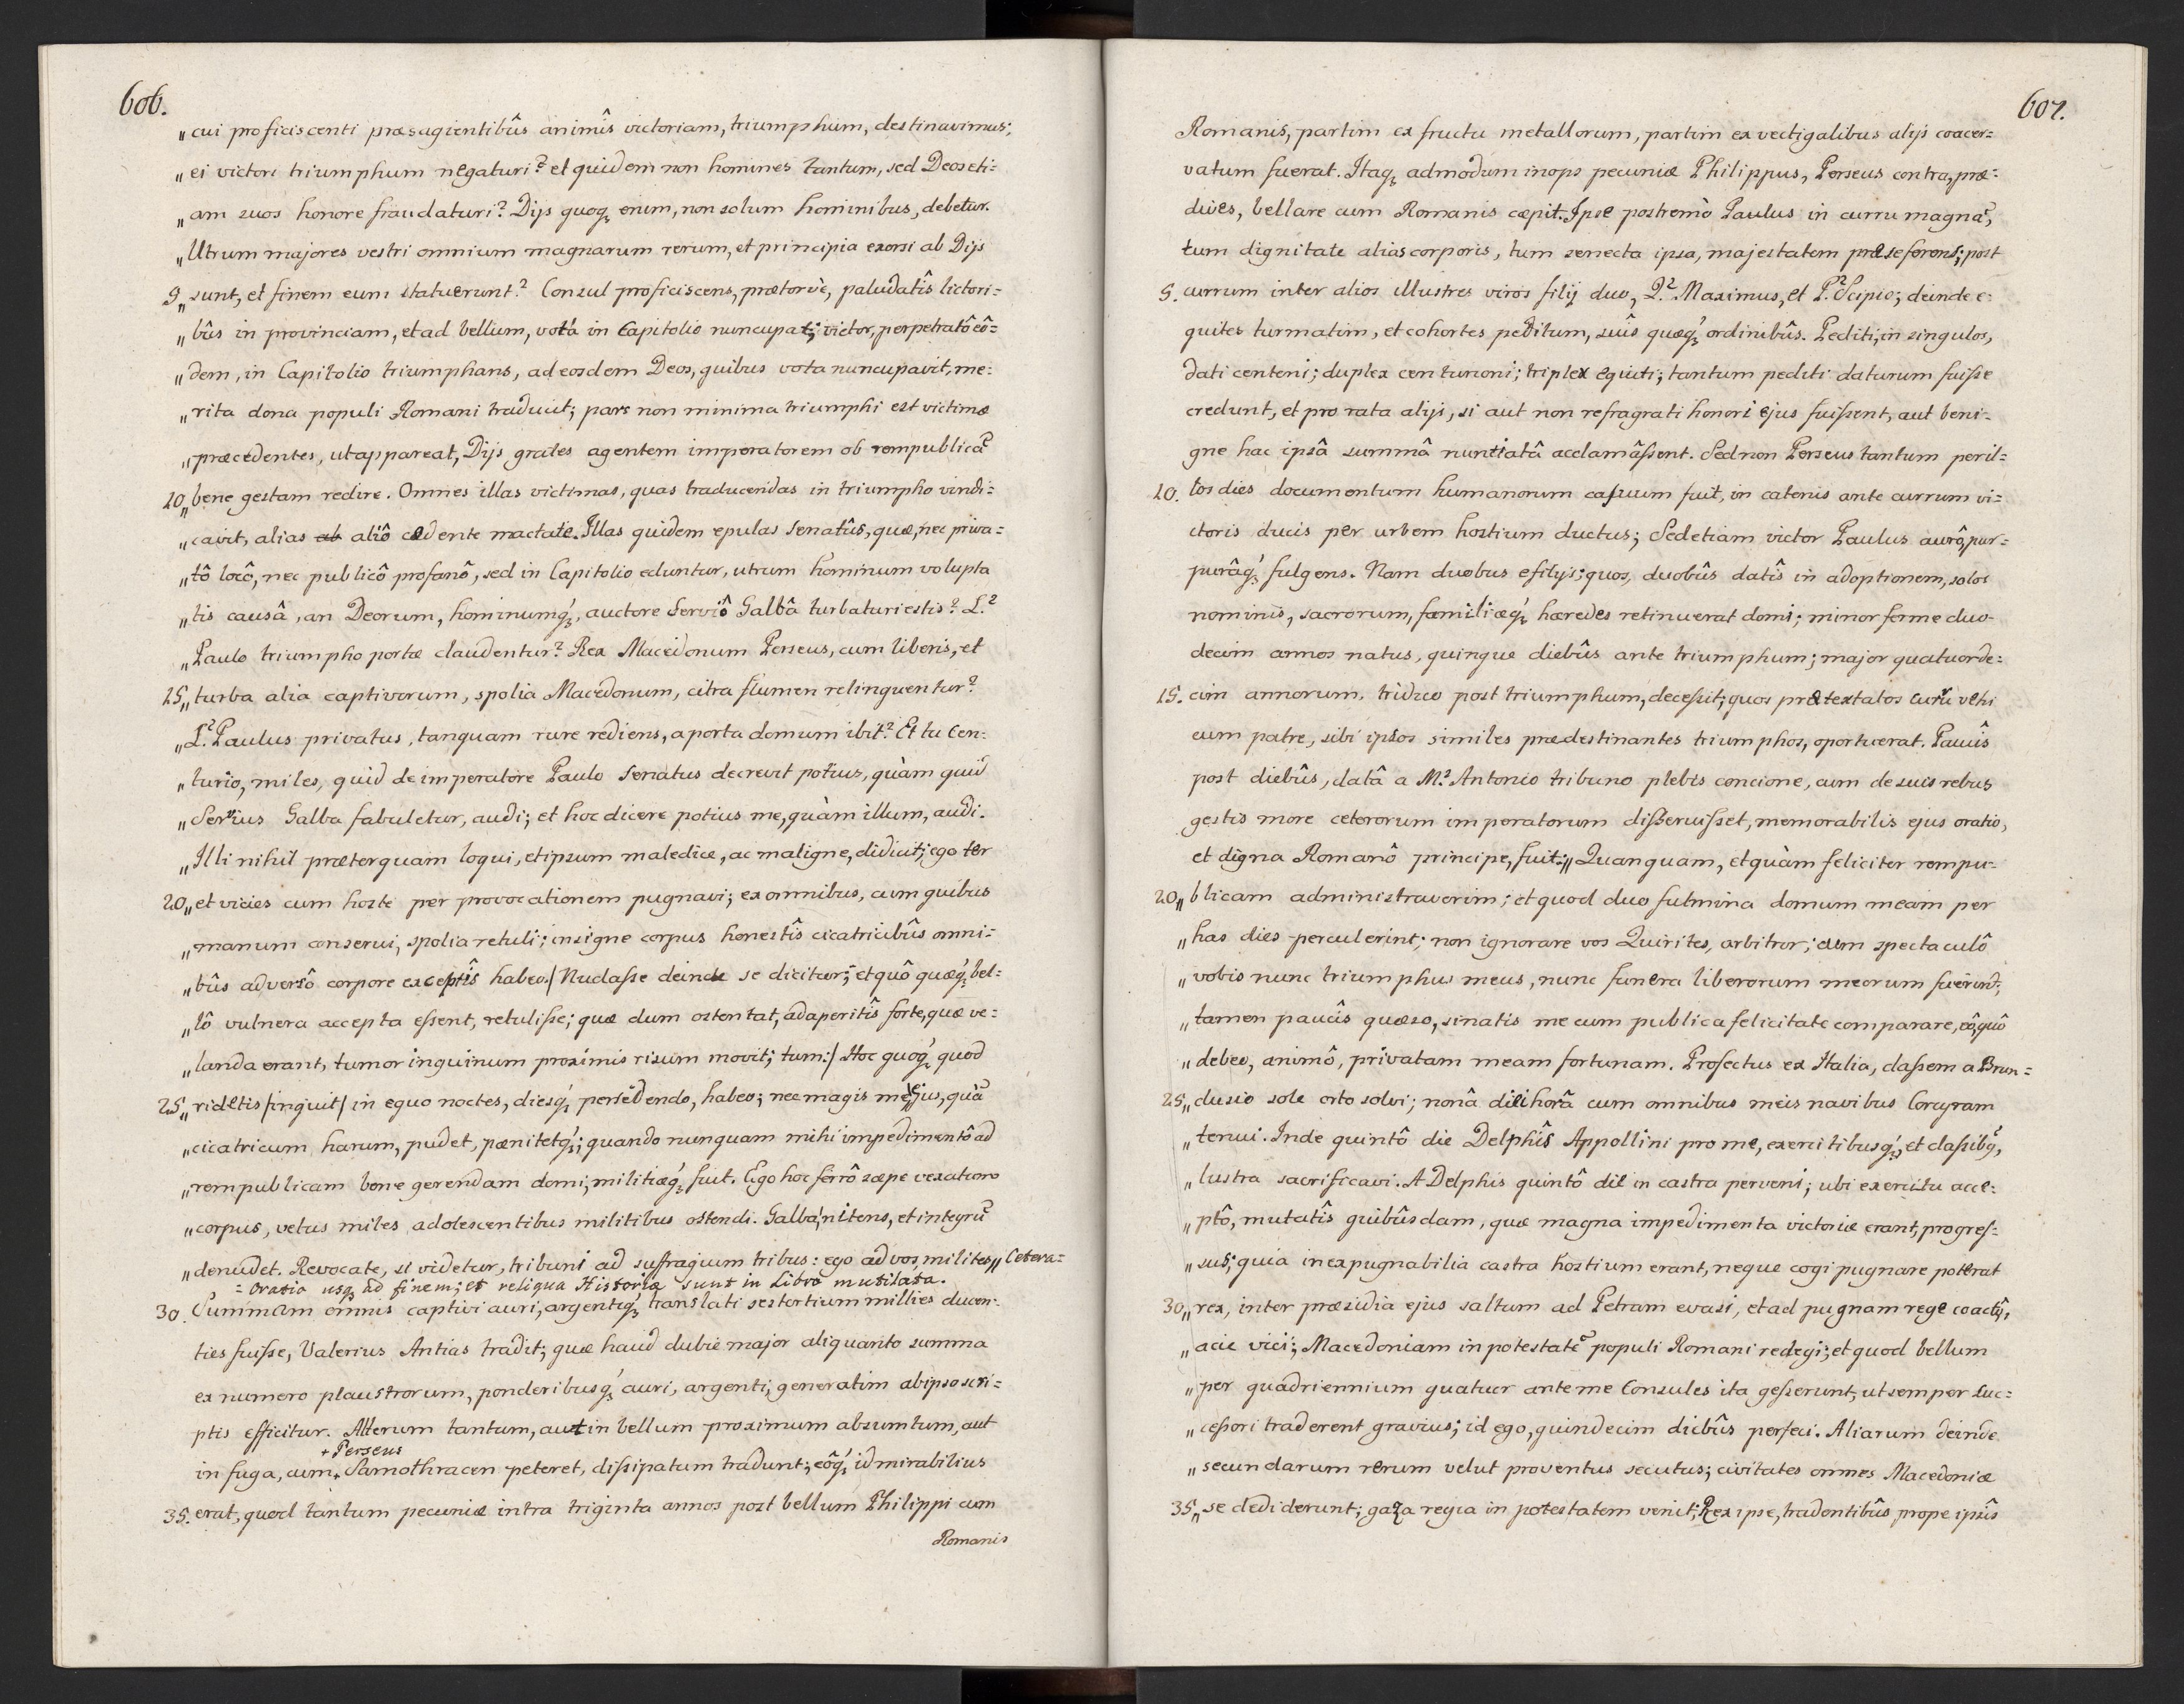 606.
„cui proficiscenti præsagientibûs animîs victoriam, triumphum, destinavimus;
„ei victori triumphum negaturi? et quidem non homines tantum, sed Deos eti=
„am suos honore fraudaturi? Dijs quoq; enim, non solum hominibus, debetur.
„Utrum majores vestri omnium magnarum rerum, et principia exorsi ab Dijs
5„sunt, et finem eum statuerunt? Consul proficiscens, prætorvè, paludatîs lictori=
„bûs in provinciam, et ad bellum, vota in Capitolio nuncupat; victor, perpetratô eô=
„dem, in Capitolio triumphans, ad eosdem Deos, quibus vota nuncupavit, me=
„rita dona populi Romani traducit; pars non minima triumphi est victimæ
„præcedentes, ut appareat, Dijs grates agentem imperatorem ob rempublicã
10„bene gestam redire. Omnes illas victimas, quas traducendas in triumpho vindi=
„cavit, alias ab aliô cædente mactate. Illas quidem epulas Senatûs, quæ, nec priva=
„tô locô, nec publicô profanô, sed in Capitolio eduntur, utrum hominum volupta
„tis causâ, an Deorum, hominumq;, auctore Serviô Galbâ turbaturi estis? L.?
„Paulo triumpho portæ claudentur? Rex Macedonum Perseus, cum liberis, et
15„turba alia captivorum, spolia Macedonum, citra flumen relinquentur?
„L.? Paulus privatus, tanquam rure rediens, a porta domum ibit? Et tu Cen=
„turio, miles, quid de imperatore Paulo Senatus decrevit potius, quàm quid
„Servius Galba fabuletur, audi; et hoc dicere potius me, quàm illum, audi.
„Illi nihil præterquam loqui, et ipsum maledice, ac maligne, didicit; ego ter
20„et vicies cum hoste per provocationem pugnavi; ex omnibus, cum quibus
„manum conserui, spolia retuli; insigne corpus honestîs cicatricibûs omni=
„bûs adversô corpore exceptîs habeo./ Nudasse deinde se dicitur; et quô quæq; bel=
„lô vulnera accepta essent, retulisse; quæ dum ostentat, adapertîs forte, quæ ve=
„landa erant, tumor inguinum proximis risum movit; tum:/ Hoc quoq; quod
25„ridetis /inquit/ in equo noctes, diesq; persedendo, habeo; nec magis me ejus, quã
„cicatricum harum, pudet, pænitetq;; quando nunquam mihi impedimentô ad
„rempublicam bene gerendam domi, militiæq; fuit. Ego hoc ferrô sæpe vexatum
„corpus, vetus miles adolescentibus militibus ostendi. Galba, nitens, et integrũ
„denudet. Revocate, si videtur, tribuni ad suffragium tribus: ego ad vos, milites„ Cetera=
= Oratio usq; ad finem; et reliqua Historiæ sunt in Libro mutilata.
30. Summam omnis captivi auri, argentiq; translati sestertium millies ducen=
ties fuisse, Valerius Antias tradit; quæ haud dubie major aliquanto summa
ex numero plaustrorum, ponderibusq; auri, argenti, generatim ab ipso scri=
ptis efficitur. Alterum tantum, aut in bellum proximum absumtum, aut
+ Perseus
in fuga, cum + Samothracen peteret, dissipatum tradunt; eôq; id mirabilius
35. erat, quod tantum pecuniæ intra triginta annos post bellum Philippi cum
Romanis
607.
Romanis, partim ex fructu metallorum, partim ex vectigalibus alijs coacer=
vatum fuerat. Itaq; admodum inops pecuniæ Philippus, Perseus contra, præ=
dives, bellare cum Romanis cæpit. Ipse postremò Paulus in curru magnã,
tum dignitate alias corporis, tum senecta ipsa, majestatem præ se ferens; post
5. currum inter alios illustres viros filij duo, Q.? Maximus, et P.? Scipio; deinde e=
quites turmatim, et cohortes peditum, suîs quæq; ordinibûs. Pediti, in singulos,
dati centeni; duplex centurioni; triplex equiti; tantum pediti daturum fuisse
credunt, et pro rata alijs, si aut non refragrati honori ejus fuissent, aut beni=
gne hac ipsâ summâ nuntiatâ acclamâssent. Sed non Perseus tantum per il=
10. los dies documentum humanorum casuum fuit, in catenis ante currum vi=
ctoris ducis per urbem hostium ductus; Sed etiam victor Paulus aurô, pur=
purâq; fulgens. Nam duobus e filijs; quos, duobûs datîs in adoptionem, solos
nominis, sacrorum, familiæq; hæredes retinuerat domi; minor ferme duo=
decim annos natus, quinque diebûs ante triumphum; major quatuorde=
15. cim annorum, triduo post triumphum, decessit; quos prætextatos curru vehi
cum patre, sibi ipsos similes prædestinantes triumphos, oportuerat. Paucîs
post diebûs, datâ a M.? Antonio tribuno plebis concione, cum de suis rebus
gestis more ceterorum imperatorum disseruisset, memorabilis ejus oratio,
et digna Romanô principe, fuit:„ Quanquam, et quàm feliciter rempu=
20„blicam administraverim; et quod duo fulmina domum meam per
„has dies perculerint; non ignorare vos Quirites, arbitror; cum spectaculô
„vobis nunc triumphus meus, nunc funera liberorum meorum fuerint;
„tamen paucîs quæso, sinatis me cum publica felicitate comparare, eô, quô
„debeo, animô, privatam meam fortunam. Profectus ex Italia, classem a Brun=
25„dusio sole orto solvi; nonâ diei horâ cum omnibus meis navibus Corcyram
„tenui. Inde quintô die Delphîs Appollini pro me, exercitibusq;, et classibq,
„lustra sacrificavi. A Delphis quintô die in castra perveni; ubi exercitu acce=
„ptô, mutatîs quibûsdam, quæ magna impedimenta victoriæ erant, progres=
„sus; quia inexpugnabilia castra hostium erant, neque cogi pugnare poterat
30„rex, inter præsidia ejus saltum ad Petram evasi, et ad pugnam rege coactô,
„acie vici; Macedoniam in potestatẽ populi Romani redegi; et quod bellum
„per quadriennium quatuor ante me Consules ita gesserunt, ut semper suc=
„cessori traderent gravius; id ego, quindecim diebûs perfeci. Aliarum deinde
„secundarum rerum velut proventus secutus; civitates omnes Macedoniæ
35„se dediderunt; gaza regia in potestatem venit; Rex ipse, tradentibûs prope ipsîs